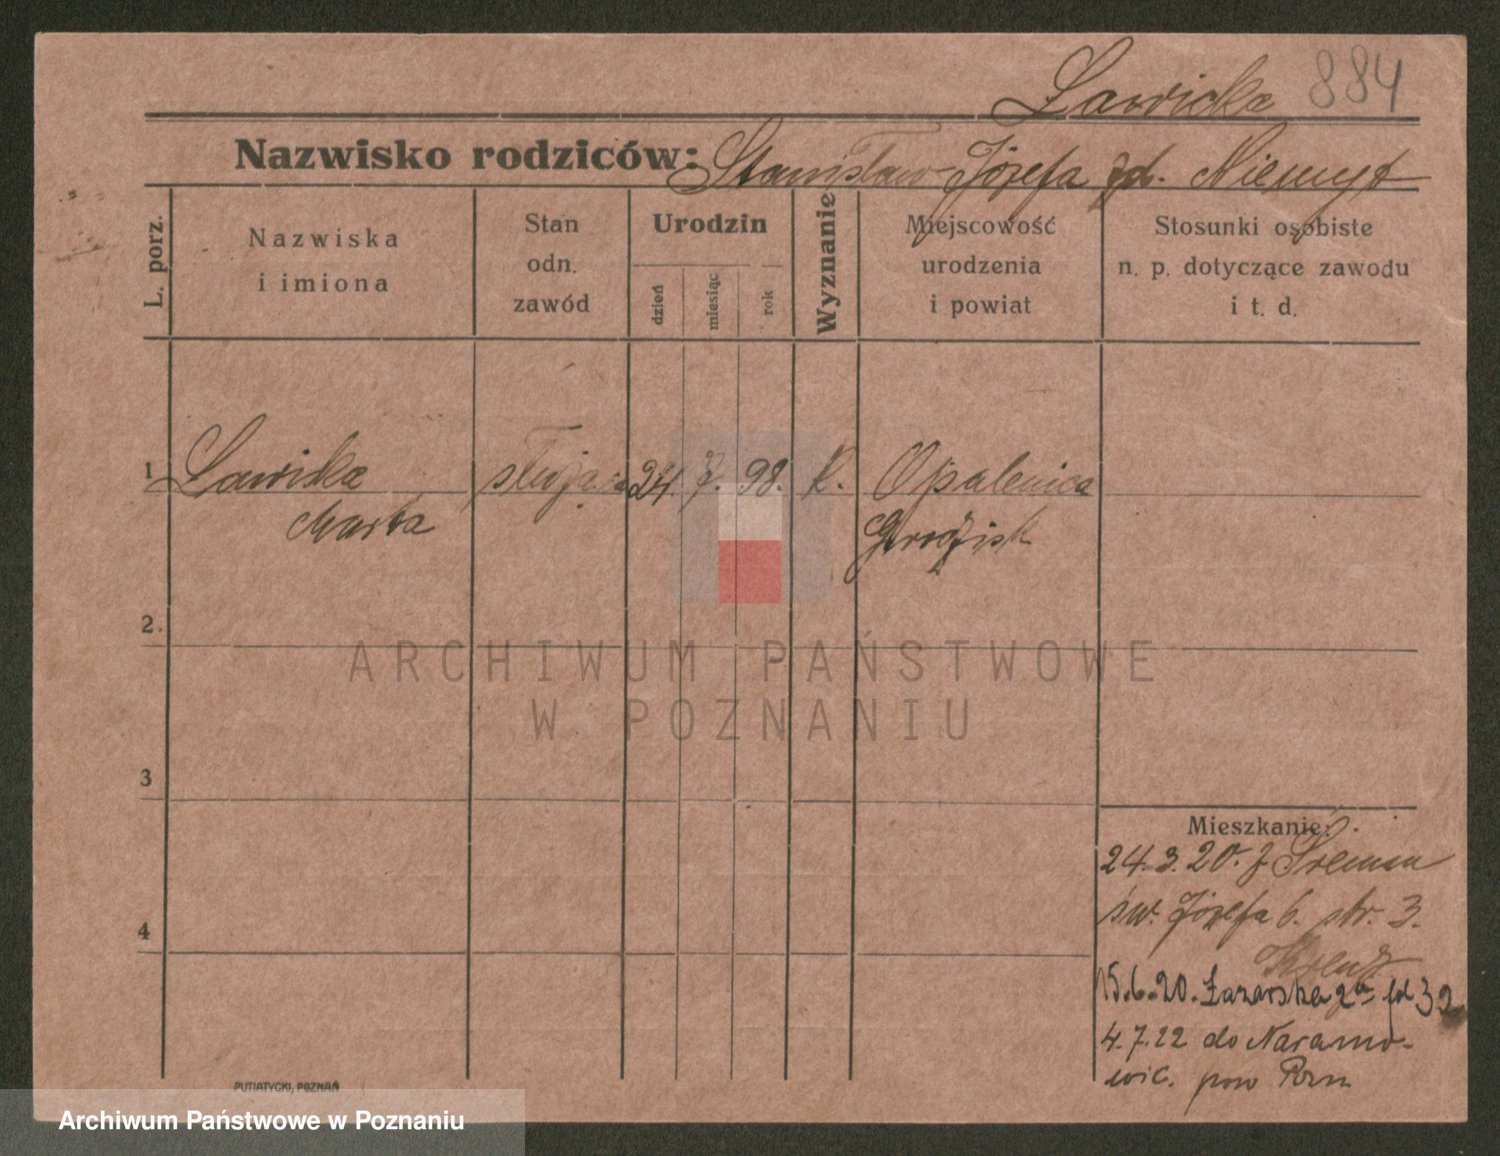 Ławicka 884
Nazwisko rodziców: Stanisław Józefa zd. Niemyt
L. porz.
Nazwiska
i imiona
Stan
odn.
zawód
Urodzin
dzień
miesiąc
rok
Wyznanie
Miejscowość
urodzenia
i powiat
Stosunki osobiste
n. p. dotyczące zawodu
i t. d.
1 Ławicka służąca 24. 7. 98. K. Opalenica
Marta Grodzisk
2.
3
4
ARCHIWUM PAŃSTWOWE
W POZNANIU
Mieszkanie:
24.3.20. z Śremu
św. Józefa 6. str. 3.
15.6.20. Łazarska 2a 32
4.7.22 do Naramo-
wic. pow Pozn
PUTIATYCKI, POZNAŃ
Archiwum Państwowe w Poznaniu